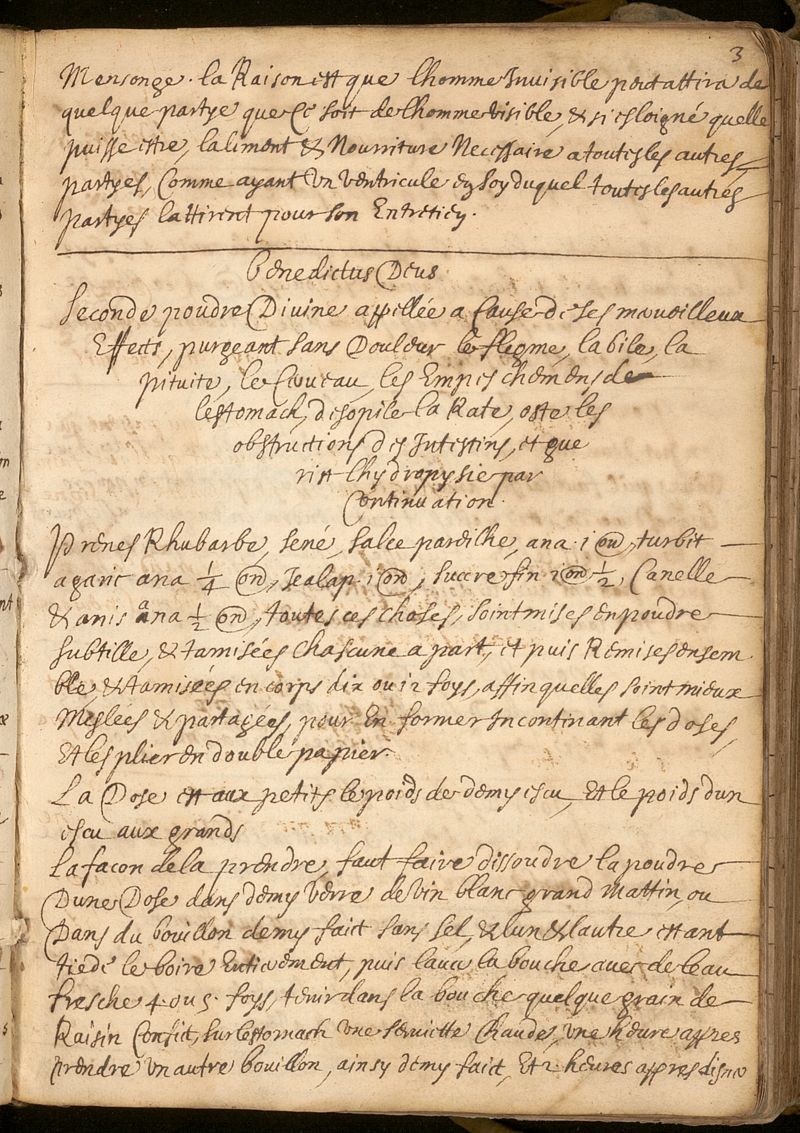 3
Mensonge. la Raison est que lhomme Invisible peut attira de
quelque partye que Ce soit de lhomme visible, & si esloigné quelle
puisse estre, laliment & Nourriture Necessaire a toutes les autres
partyes, Comme ayant Un Ventricule en soy duquel toutes les autres
partyes lattirent pour son Entretien.
benedictus Deus
Seconde poudre Divine appellée a Cause de ses mervoilleux
Effects, purgeant sans Douleur le flegme, la bile, la
pituite, le Cerveau, les Empeschemens de
lestomach, desopile la Rate, oste les
obstructions des Intestins, et gue
rist lhydropysie par
Continuation.
Prenes Rhubarbe, sené, salce pareilhe, ana. i on, turbit
agaric ana 1/4 on, Jealap. i on, succre fin i on 1/2, Canelle
& anis ana 1/2 on, toutes ces choses, soint mises en poudre
subtille, & tamisées chascune a part, et puis Remises ensem
ble, & tamisées en corps dix ou 12 foys, affin quelles soint mieux
Meslées & partagées, pour En former Incontinant les doses,
Et les plier en double papier.
La Dose est aux petits le poids de demy escu, Et le poids dun
escu aux grands
La facon de la prendre, faut faire dissoudre la poudre
Dune Dose dans demy verre de vin blanc grand mattin, ou
Dans du bouillon demy faict sans sel, & lun & lautre estant
tiede le boire Entierement, puis laver la bouche avec de leau
fresche 4. ou 5. foys, tenir dans la bouche quelque grain de
Raisin Confit, sur lestomach une serviette Chaude, une heure appres
prendre un autre bouillon, ainsy demy faict, Et 2 heures appres disne